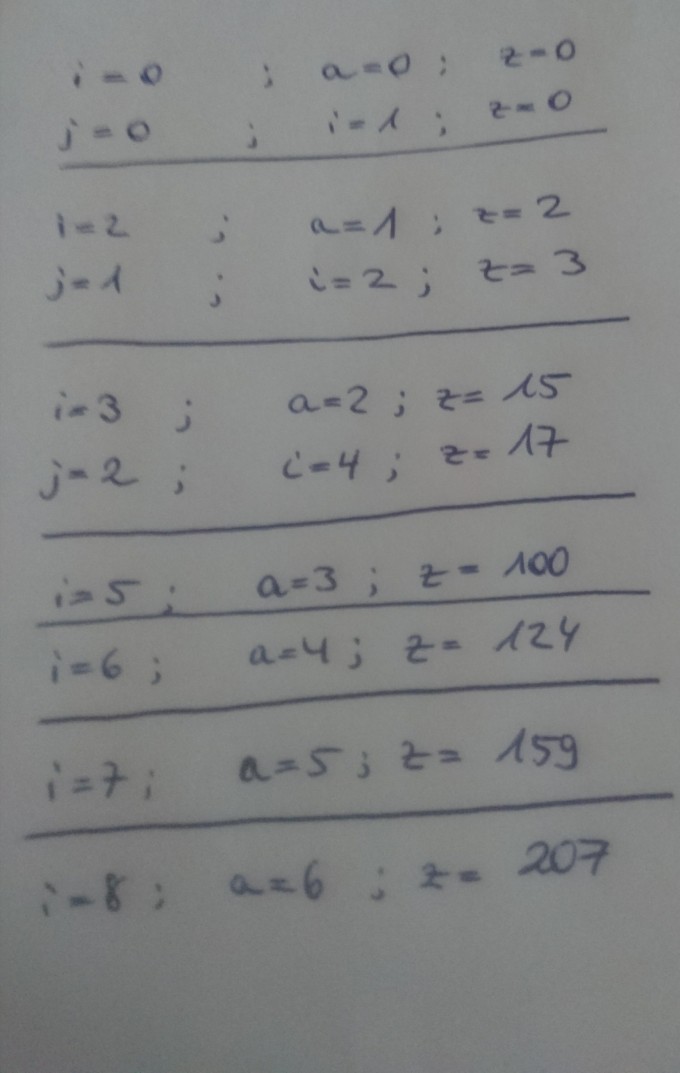 i=0 ; a=0 ; z=0
j=0 ; i=1 ; z=0
i=2 ; a=1 ; z=2
j=1 ; i=2 ; z=3
i=3 ; a=2 ; z=15
j=2 ; i=4 ; z=17
i=5 ; a=3 ; z=100
i=6 ; a=4 ; z=124
i=7 ; a=5 ; z=159
i=8 ; a=6 ; z=207